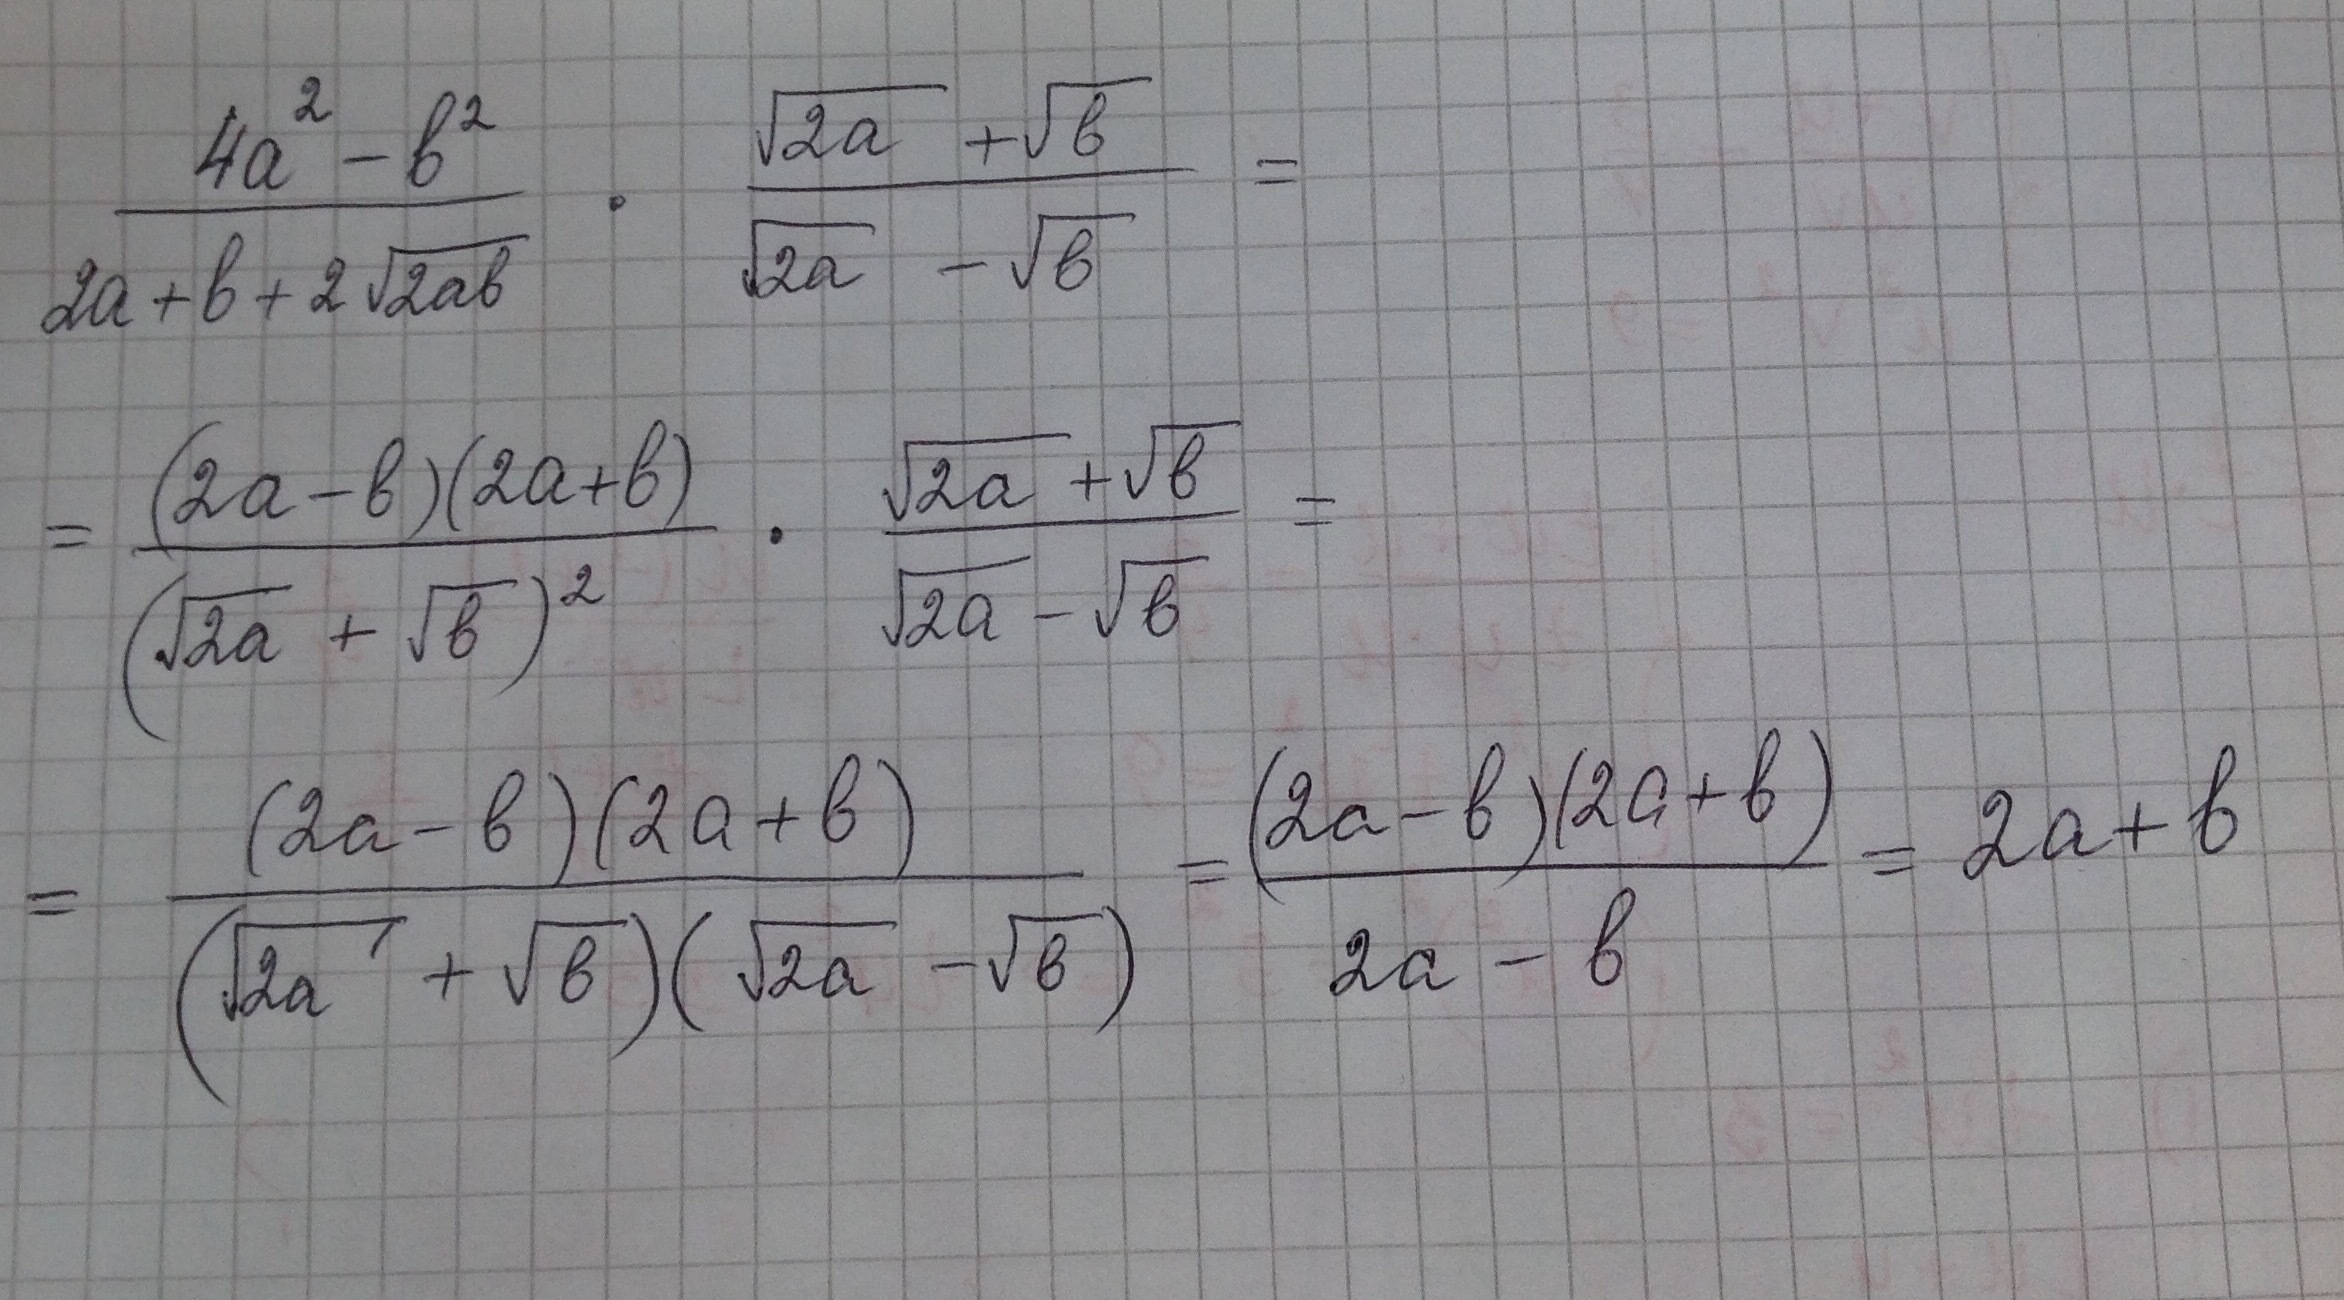 (4a² - b²)/(2a + b + 2√(2ab)) · (√(2a) + √b)/(√(2a) - √b) =
= ((2a - b)(2a + b))/(√(2a) + √b)² · (√(2a) + √b)/(√(2a) - √b) =
= ((2a - b)(2a + b))/((√(2a) + √b)(√(2a) - √b)) = ((2a - b)(2a + b))/(2a - b) = 2a + b